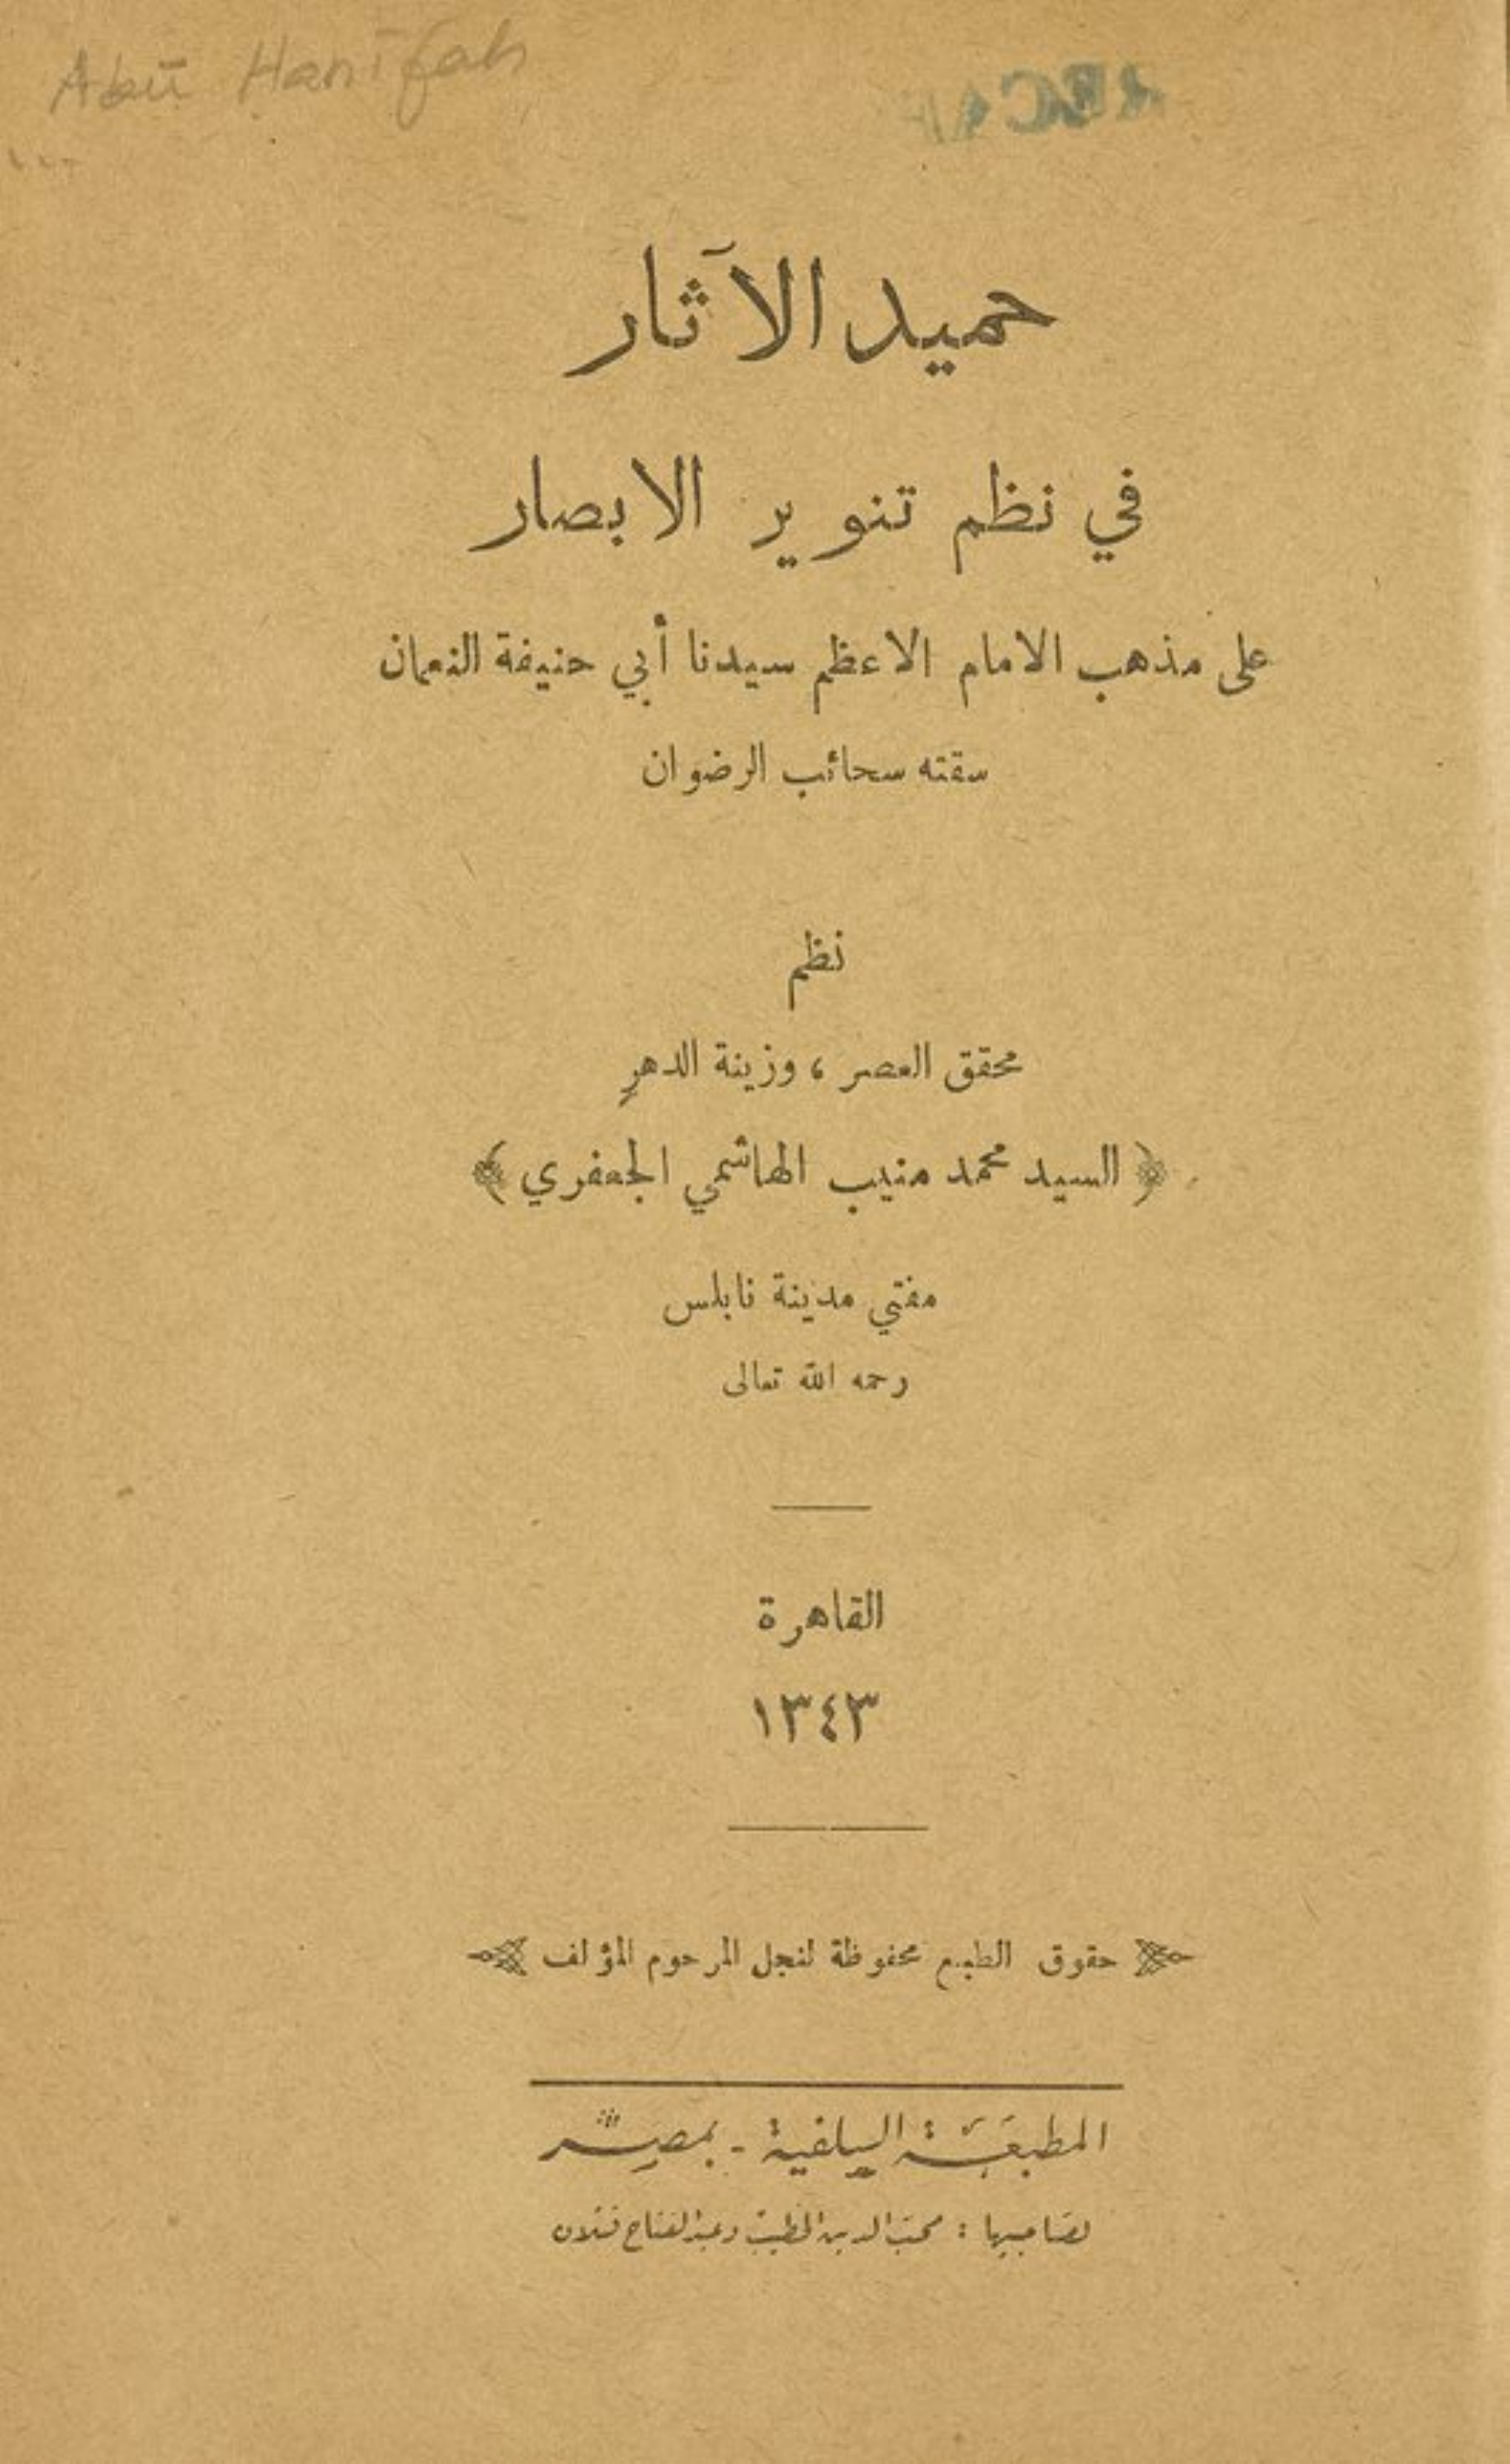 Abū Hanīfah
حميد الآثار
في نظم تنوير الابصار
على مذهب الامام الاعظم سيدنا أبي حنيفة النعمان
سقته سحائب الرضوان
نظم
محقق العصر ، وزينة الدهر
﴿ السيد محمد منيب الهاشمي الجعفري ﴾
مفتي مدينة نابلس
رحمه الله تعالى
القاهرة
١٣٤٣
حقوق الطبع محفوظة لنجل المرحوم المؤلف
المطبعة السلفية - بمصر
لصاحبيها : محب الدين الخطيب وعبد الفتاح قتلان